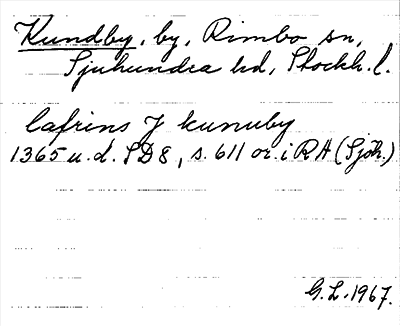 Kundby, by, Rimbo sn,
Sjuhundra hd, Stockh. l.
Cafrins J kunuby
1365 u.d. SD8, s. 611 or. i RA (Sjöh.)
G.L. 1967.